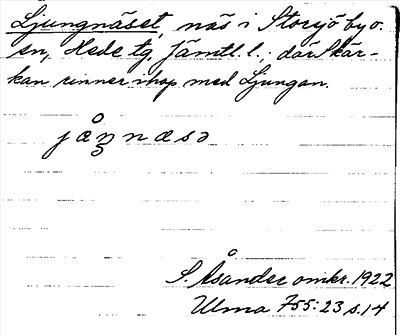 Ljungnäset, näs i Storsjö by o.
sn, Hede tg, Jämtl. l.; där Skär-
kan rinner ihop med Ljungan.
jåŋnæsə
S. Åsander omkr. 1922
Ulma 755:23 s. 14